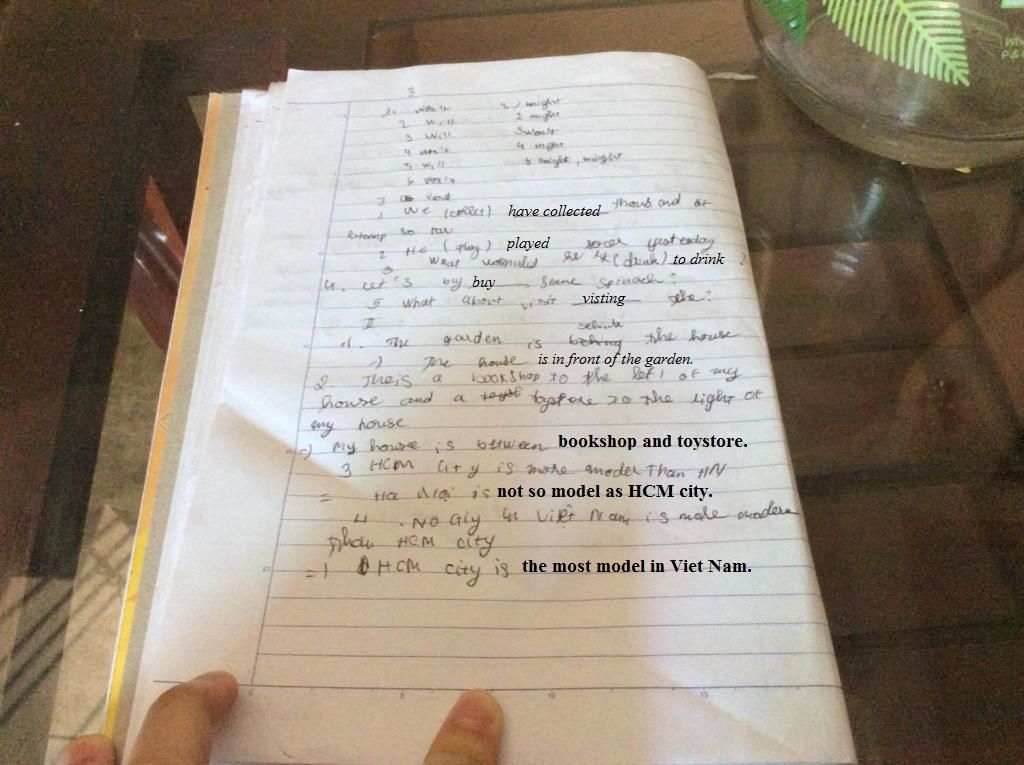 3
1. won't 1 / might
2 will 2 might
3 will 3 won't
4 won't 4 might
5 will 5 might, might
6 won't
I
1 We (collect) have collected thousand of
stamp so far
2 He (play) played socer yesterday
3 What would he (drink) to drink ?
4. Let's buy buy some spinach?
5 What about visit visting the?
II
1. The garden is behind the house
=) The house is in front of the garden.
2. Theis a bookshop to the left of my
house and a toystore to the light of
my house
=) My house is between bookshop and toystore.
3 HCM City is more model than HN
= Ha Nội is not so model as HCM city.
4. NO City in Việt Nam is more modern
than HCM city
=) HCM city is the most model in Viet Nam.
5
10
15